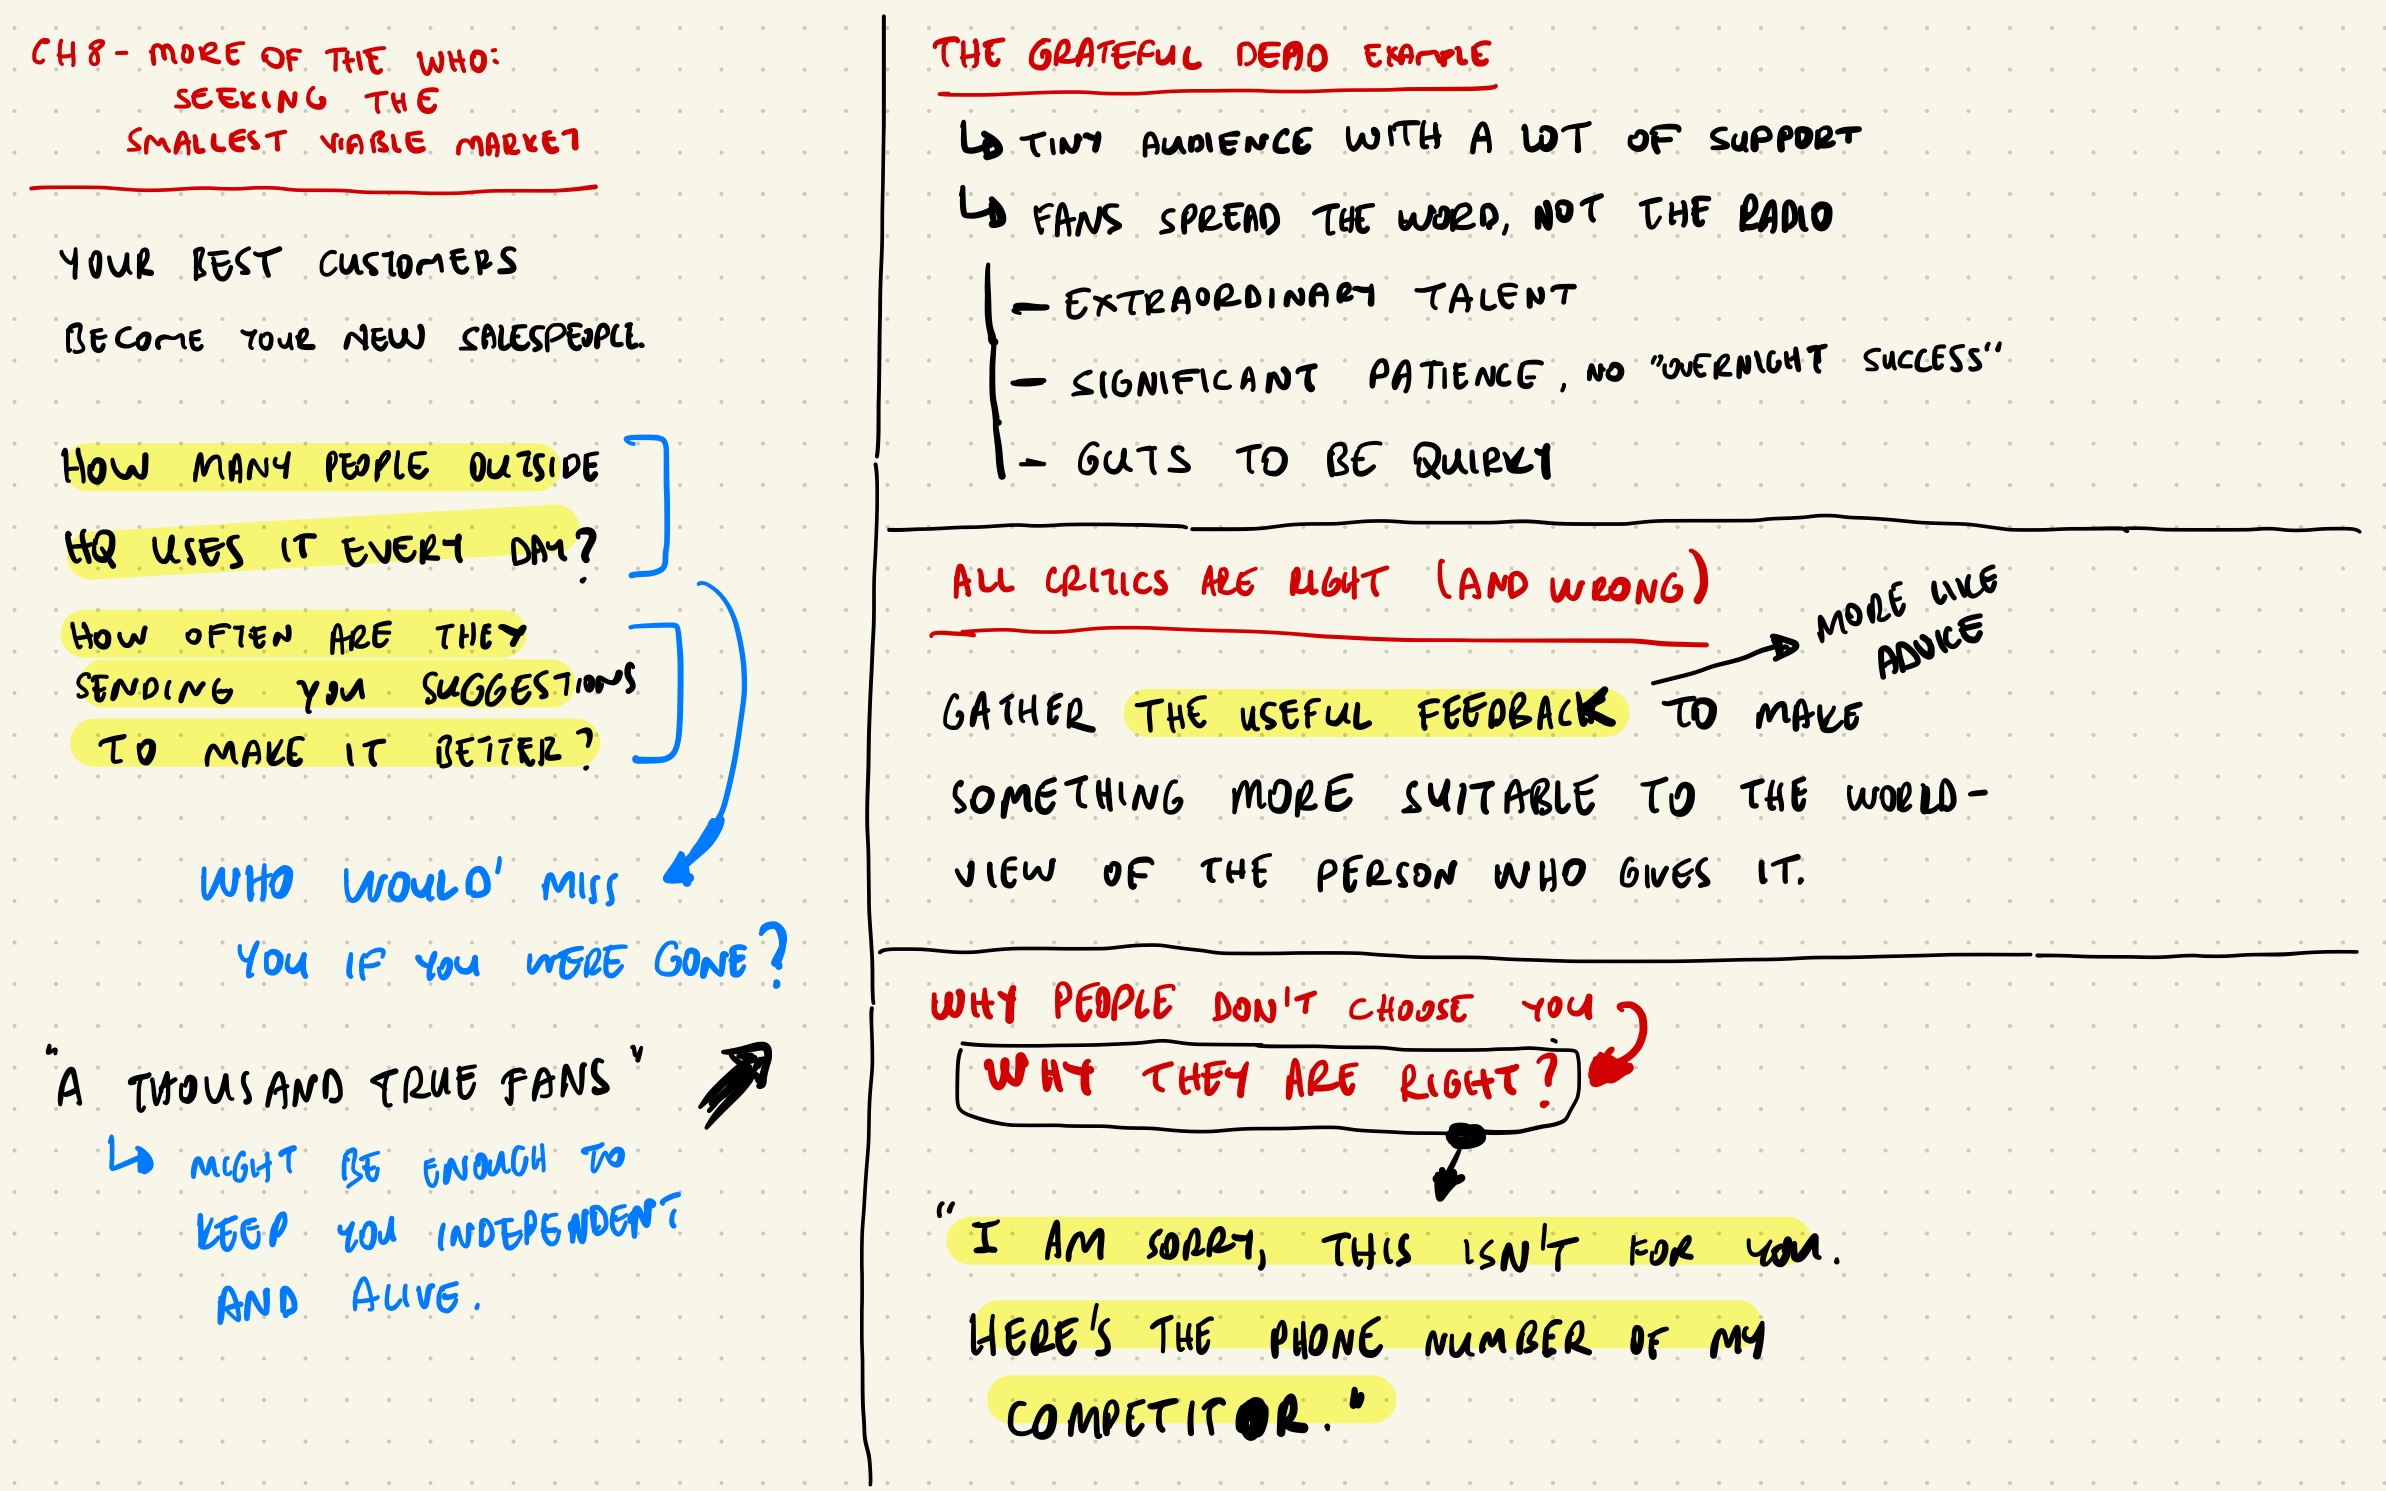 CH 8 - MORE OF THE WHO:
SEEKING THE
SMALLEST VIABLE MARKET
YOUR BEST CUSTOMERS
BECOME YOUR NEW SALESPEOPLE.
HOW MANY PEOPLE OUTSIDE
HQ USES IT EVERY DAY?
HOW OFTEN ARE THEY
SENDING YOU SUGGESTIONS
TO MAKE IT BETTER?
WHO WOULD' MISS
YOU IF YOU WERE GONE?
"A THOUSAND TRUE FANS"
MIGHT BE ENOUGH TO
KEEP YOU INDEPENDENT
AND ALIVE.
THE GRATEFUL DEAD EXAMPLE
TINY AUDIENCE WITH A LOT OF SUPPORT
FANS SPREAD THE WORD, NOT THE RADIO
- EXTRAORDINARY TALENT
- SIGNIFICANT PATIENCE, NO "OVERNIGHT SUCCESS"
- GUTS TO BE QUIRKY
ALL CRITICS ARE RIGHT (AND WRONG)
MORE LIKE
ADVICE
GATHER THE USEFUL FEEDBACK TO MAKE
SOMETHING MORE SUITABLE TO THE WORLD-
VIEW OF THE PERSON WHO GIVES IT.
WHY PEOPLE DON'T CHOOSE YOU
WHY THEY ARE RIGHT?
"I AM SORRY, THIS ISN'T FOR YOU.
HERE'S THE PHONE NUMBER OF MY
COMPETITOR."